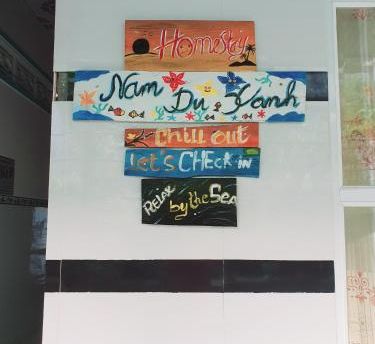 Homestay
Nam Du Xanh
chill out
Let's CHEck-in
RELAX by the SEA